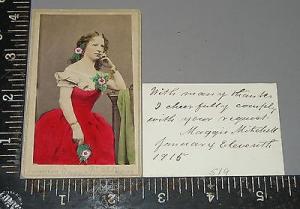 With many thanks
I cheerfully comply
with your request.
Maggie Mitchell
January Eleventh
1915
5
4
3
2
1
1
2
3
4
5